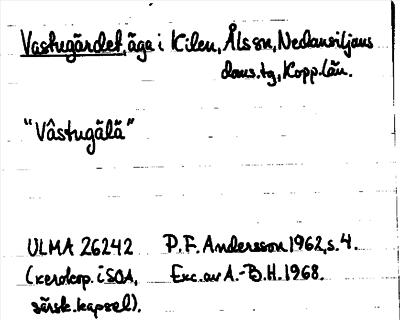 Vastugärdet, äga i Kilen, Åls sn, Nedansiljans
doms.tg, Kopp.län.
"Vâstugälä"
ULMA 26242 P.F. Andersson 1962, s. 4.
(xerokop. i SOA, Exc. av A.-B.H. 1968.
särsk. kapsel).